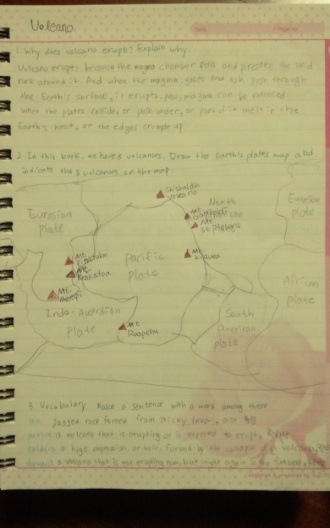 Volcano
1. Why does volcano erupt? Explain why.
Volcano erupts because the magma chamber fills and presses the solid
rock around it. And when the magma, gases and ash push through
the Earth's surface, it erupts. Also, magma can be
when the plates collide, or push under, or melt in the
Earth's heat, or the edges crumple up.
2. In this book, we have 8 volcanoes. Draw the earth's plates map and
indicate the 8 volcanoes on the map.
Shishaldin
Volcano
Eurasian
plate
North
Eurasian
plate
Mt.
Mt.
St. Helens
Mt.
Pinatubo
Mt.
Krakatoa
Pacific
plate
Mt.
Kilauea
African
plate
Mt.
Merapi
Indo-Australian
plate
Mt.
Ruapehu
South
American
plate
3. Vocabulary Make a sentence with a word among these.
Jagged rock formed from sticky lava,
a volcano that is erupting or is expected to erupt,
a huge depression, or hole, formed by the collapse of
a volcano that is not erupting now, but might again in the